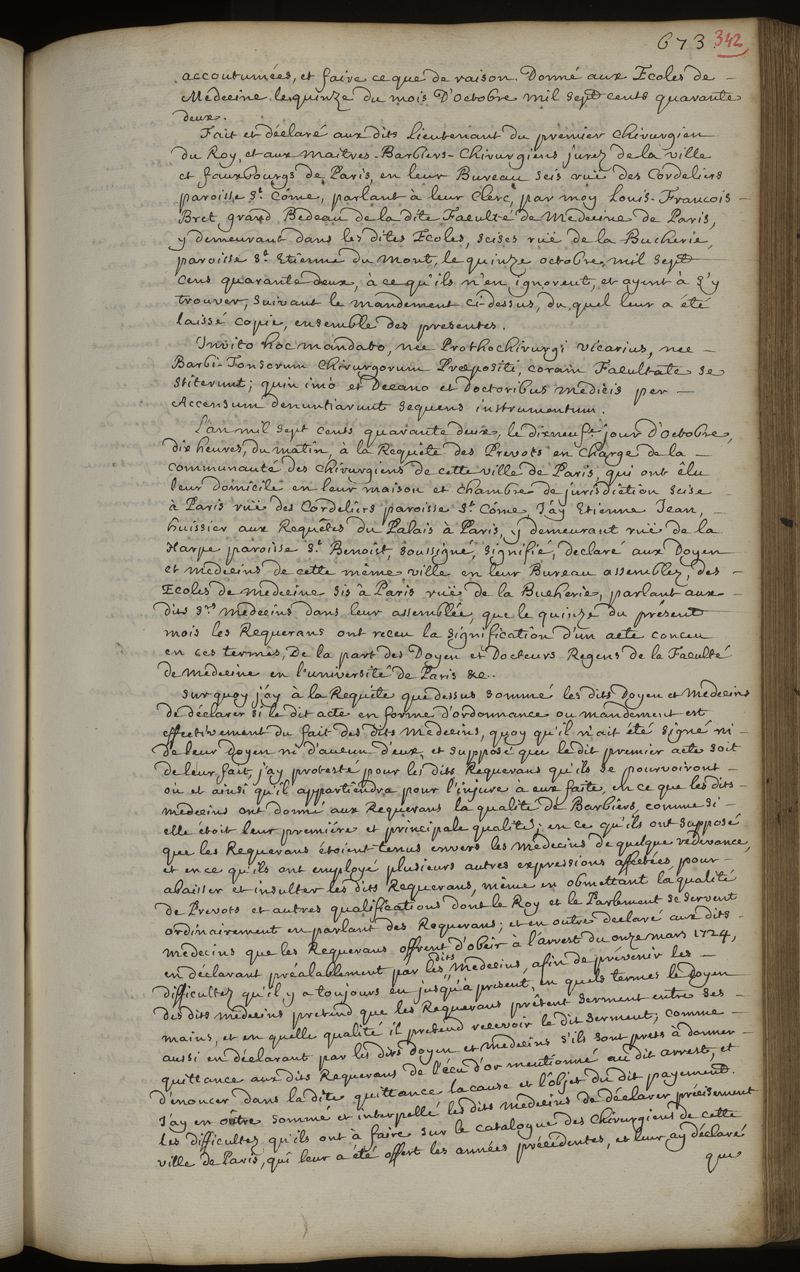 673 342
accoutumées, et faire ce que de raison. Donné aux Ecoles de
Médecine le quinze du mois D'octobre mil sept cents quarante
deux.
Fait et déclaré aux dits Lieutenant du premier chirurgien
du Roy, et aux maitres-Barbiers-Chirurgiens jurez de la ville
et fauxbourgs de Paris, en leur Bureau seis rüe des Cordeliers
paroisse St. Côme, parlant à leur Clerc, par moy Louis-Francois
Bret grand Bedeau de la dite Faculté de Medecine de Paris,
y demeurant dans les dites Ecoles, seises rüe de la Bucherie,
paroisse St. Etienne du Mont, le quinze octobre mil sept
cens quarante deux, à ce qu'ils n'en ignorent, et ayent à s'y
trouver, suivant le mandement ci-dessus, du quel leur a été
laissé copie, ensemble des presentes.
Invito hoc mandato, nec Prothochirurgi vicarius, nec
Barbi-Tonsorum Chirurgorum Præpositi, coram Facultate se
stiterunt; quin imò et Decano et Doctoribus medicis per
Accensum denuntiarunt sequens instrumentum.
L'an mil sept cents quarante deux, le dixneufe jour d'octobre,
dix heures, du matin, à la Requête des Prevots en charge de la
communauté des chirurgiens de cette ville de Paris, qui ont élu
leur domicile en leur maison et chambre de jurisdiction seise
à Paris rüe des Cordeliers paroisse St. Côme, J'ay Etienne Jean,
huissier aux Requêtes du Palais à Paris, y demeurant rüe de la
Harpe paroisse St. Benoist, soussigné, signifié, declaré aux Doyen
et medecins de cette même ville en leur Bureau assemblez, des
Ecoles de medecine sis à Paris rüe de la Bucherie, parlant aux
dits Srs. medecins dans leur assemblée, que le quinze du présent
mois les Requerans ont receu la signification d'un acte conceu
en ces termes, De la part des Doyen et Docteurs Regens de la Faculté
de medecine en l'université de Paris &c.
Sur quoy j'ay à la Requête que dessus sommé les dits Doyen et Medecins
de déclarer si le dit acte en forme d'ordonnance ou mandement est
effectivement du fait des dits medecins, quoy qu'il n'ait été signé ni
de leur Doyen ni d'aucun d'eux, et supposé que le dit premier acte soit
de leur fait, j'ay protesté pour les dits Requerans qu'ils se pourvoiront
où et ainsi qu'il appartiendra pour l'injure à eux faite, en ce que les dits
medecins ont donné aux Requerans la qualité de Barbiers, comme si
elle étoit leur première et principale qualité; en ce qu'ils ont supposé
que les Requerans étoient tenus envers les medecins de quelque redevance,
et en ce qu'ils ont employé plusieurs autres expressions affectées pour
abaisser et insulter les dits Requerans, même en obmettant la qualité
de Prevots et autres qualifications dont le Roy et le Parlement se servent
ordinairement en parlant des Requerans; et en outre declaré aux dits
medecins que les Requerans offrent d'obeir à l'arrest du onze mars 1724,
en déclarant préalablement par les dits medecins, afin de prévenir les
difficultez qu'il y a toujours eu jusqu'à present, en quels termes le Doyen
des dits medecins pretend que les Requerans prêtent serment entre ses
mains, et en quelle qualité il pretend recevoir le dit serment; comme
aussi en déclarant par les dits Doyen et medecins s'ils sont prets à donner
quittance aux dits Requerans de l'écu d'or mentionné au dit arrest, et
d'enoncer dans la dite quittance la cause et l'objet du dit payement.
J'ay en outre sommé et interpellé les dits medecins de déclarer précisement
les difficultez qu'ils ont à faire sur le catalogue des chirurgiens de cette
ville de Paris, qui leur a été offert les années précédentes, et leur ay déclaré
que